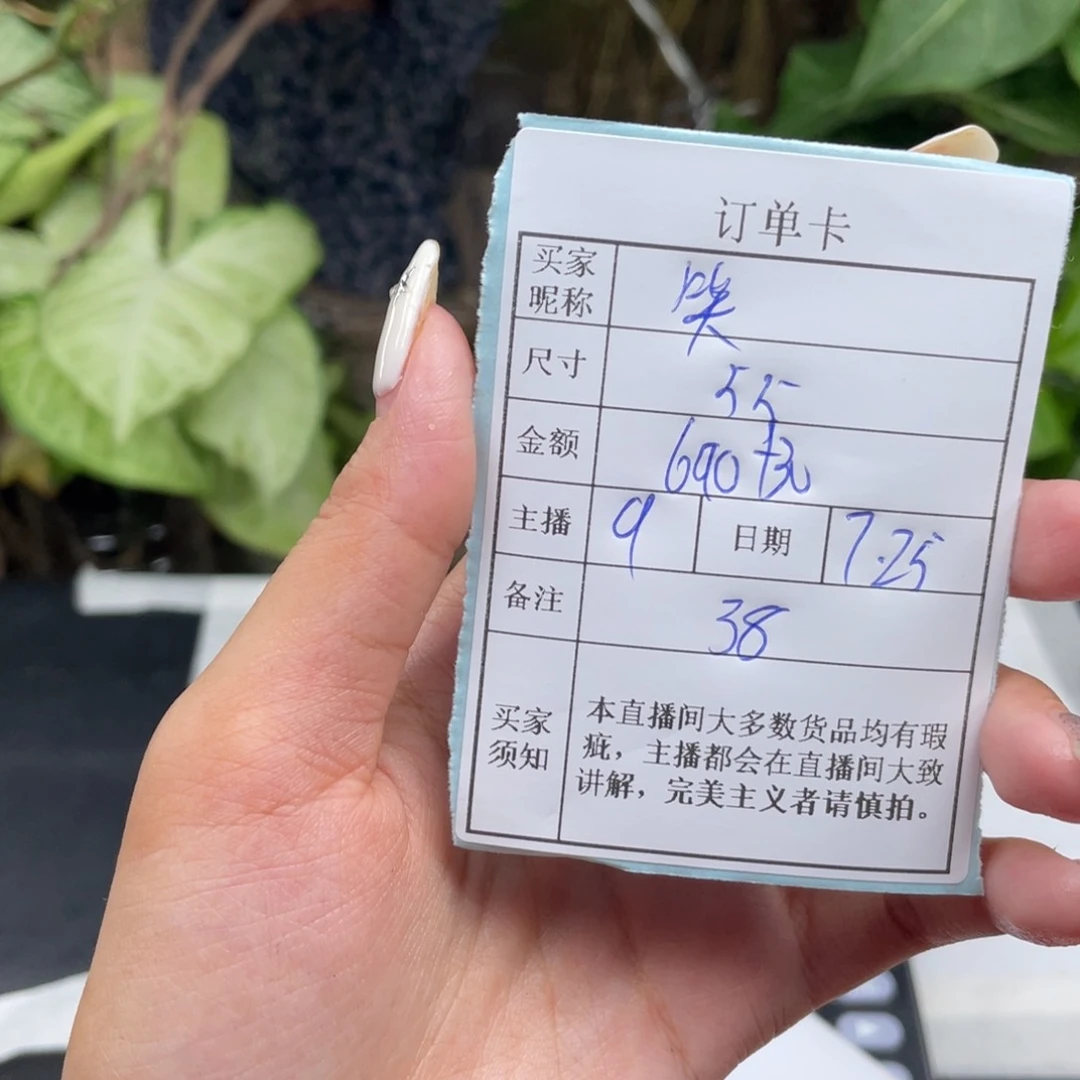 订单卡
买家昵称 哭
尺寸 55
金额 690+30
主播 9 日期 7.25
备注 38
买家须知
本直播间大多数货品均有瑕
疵，主播都会在直播间大致
讲解，完美主义者请慎拍。